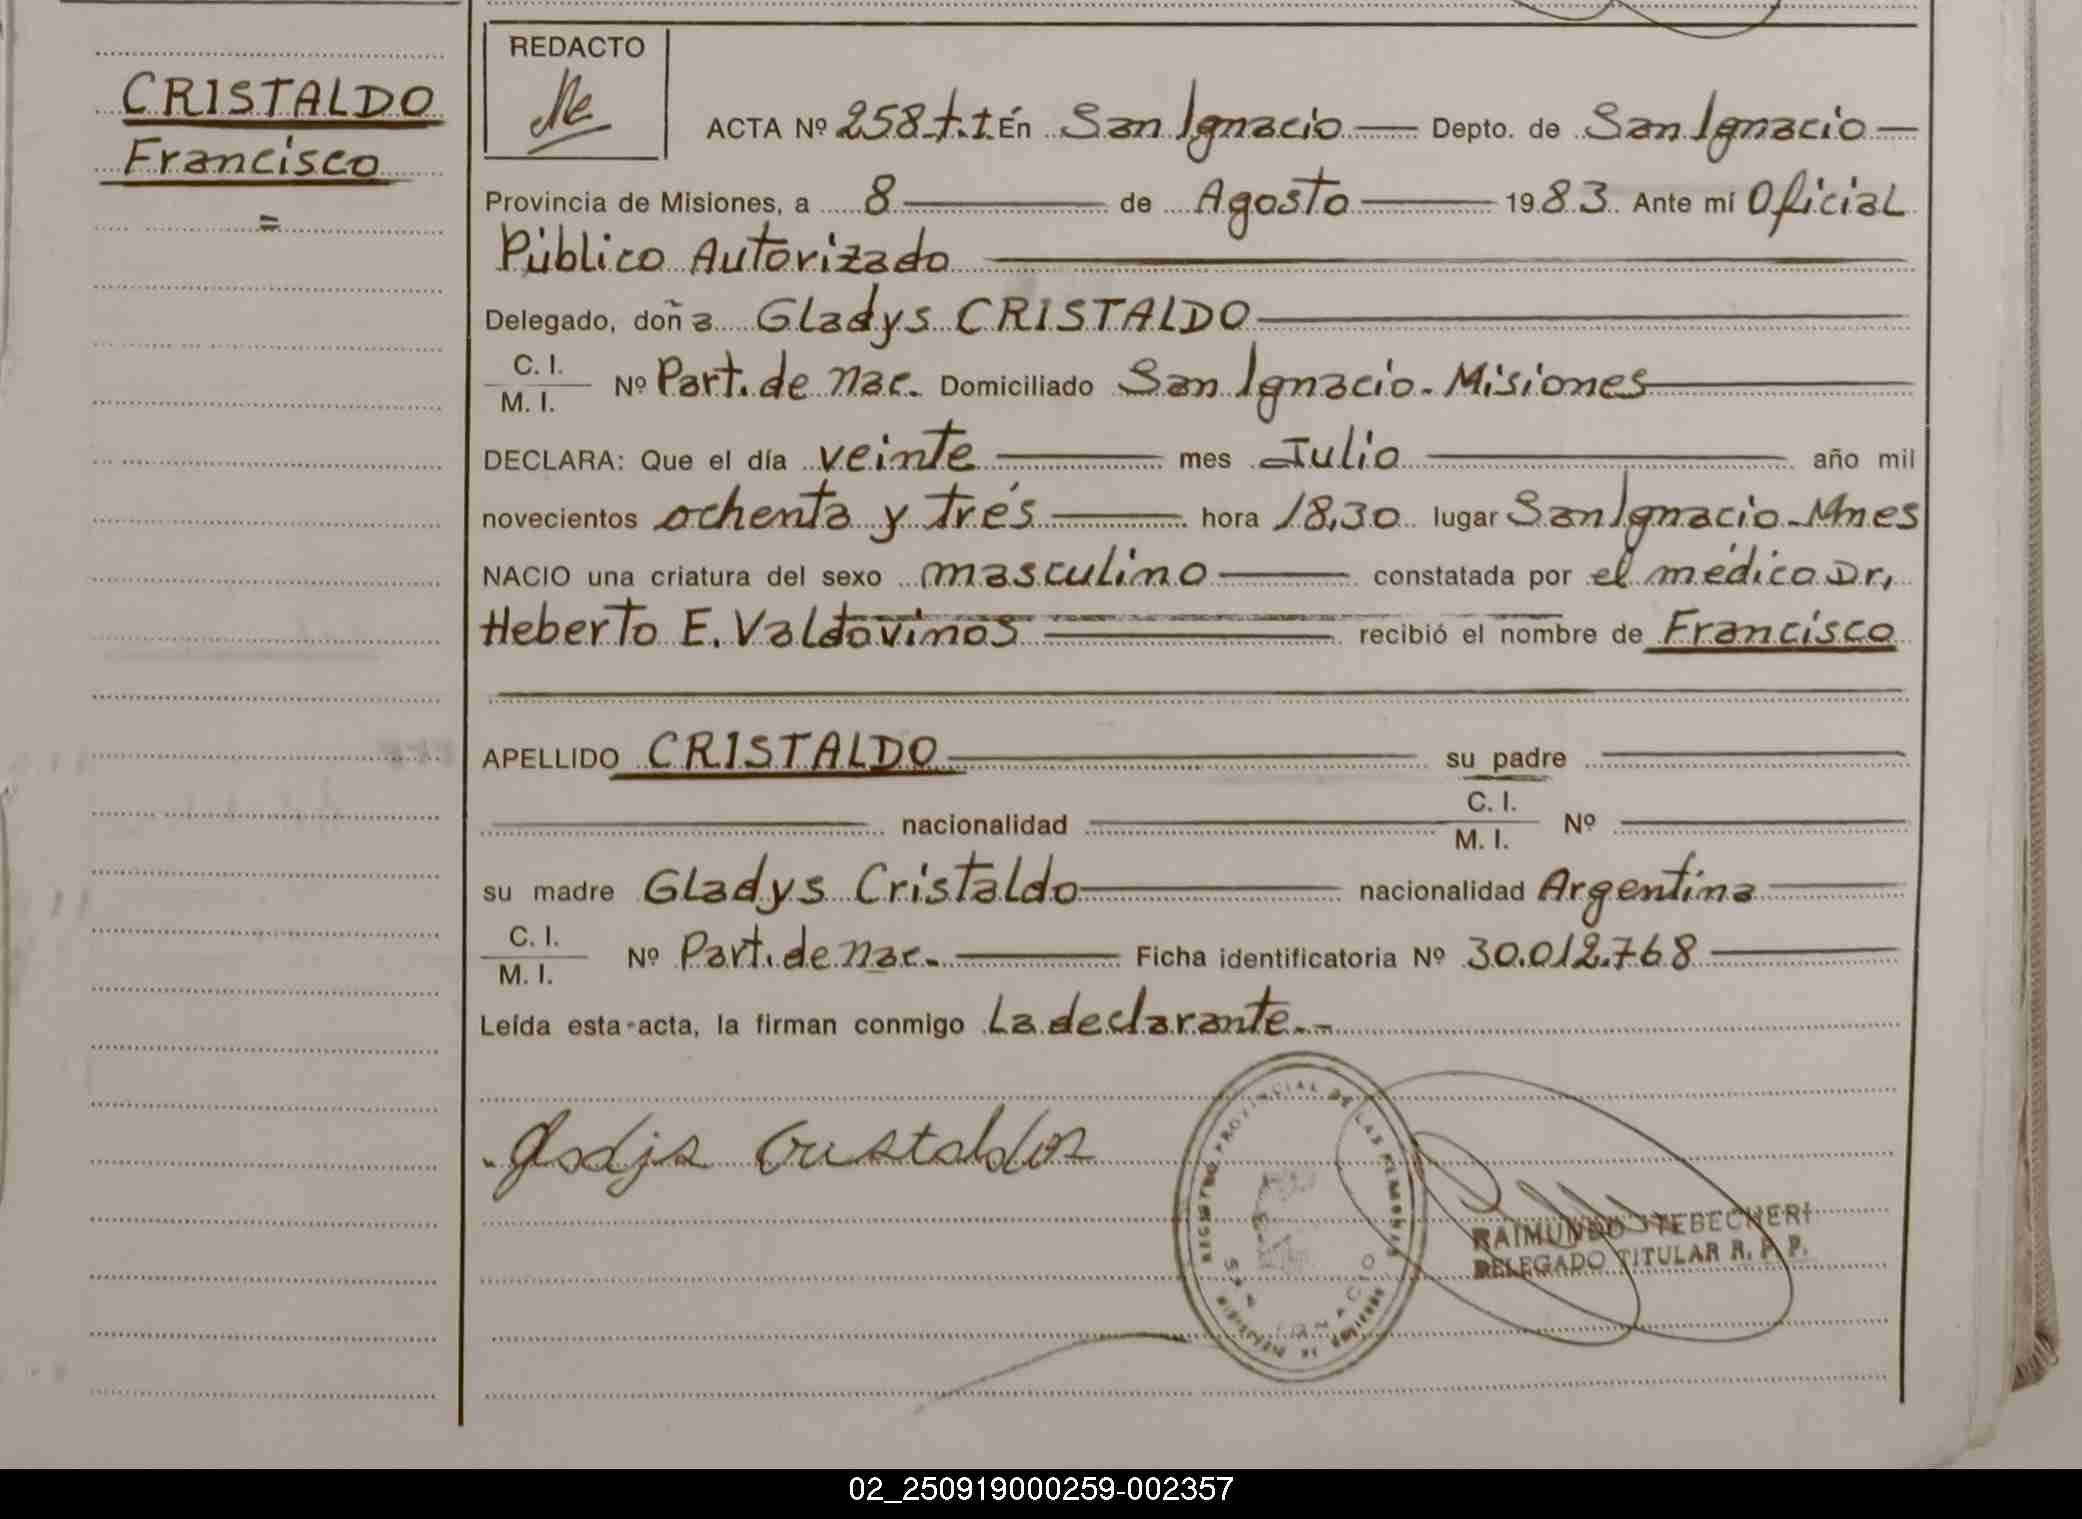 CRISTALDO
Francisco
=
REDACTO
ACTA Nº 258 t.1. En San Ignacio Depto. de San Ignacio
Provincia de Misiones, a 8 de Agosto 1983. Ante mí Oficial
Público Autorizado
Delegado, doña Gladys CRISTALDO
C. I.
M. I. Nº Part. de nac. Domiciliado San Ignacio - Misiones
DECLARA: Que el día veinte mes Julio año mil
novecientos ochenta y trés hora 18,30 lugar San Ignacio - Mnes
NACIO una criatura del sexo masculino constatada por el médico Dr,
Heberto E. Valdovinos recibió el nombre de Francisco
APELLIDO CRISTALDO su padre
nacionalidad C. I.
M. I. Nº
su madre Gladys Cristaldo nacionalidad Argentina
C. I.
M. I. Nº Part. de nac. Ficha identificatoria Nº 30.012.768
Leída esta acta, la firman conmigo La declarante.-
REGISTRO PROVINCIAL DE LAS PERSONAS
SAN IGNACIO
RAIMUNDO ITEBECHERI
DELEGADO TITULAR R. P. P.
02_250919000259-002357